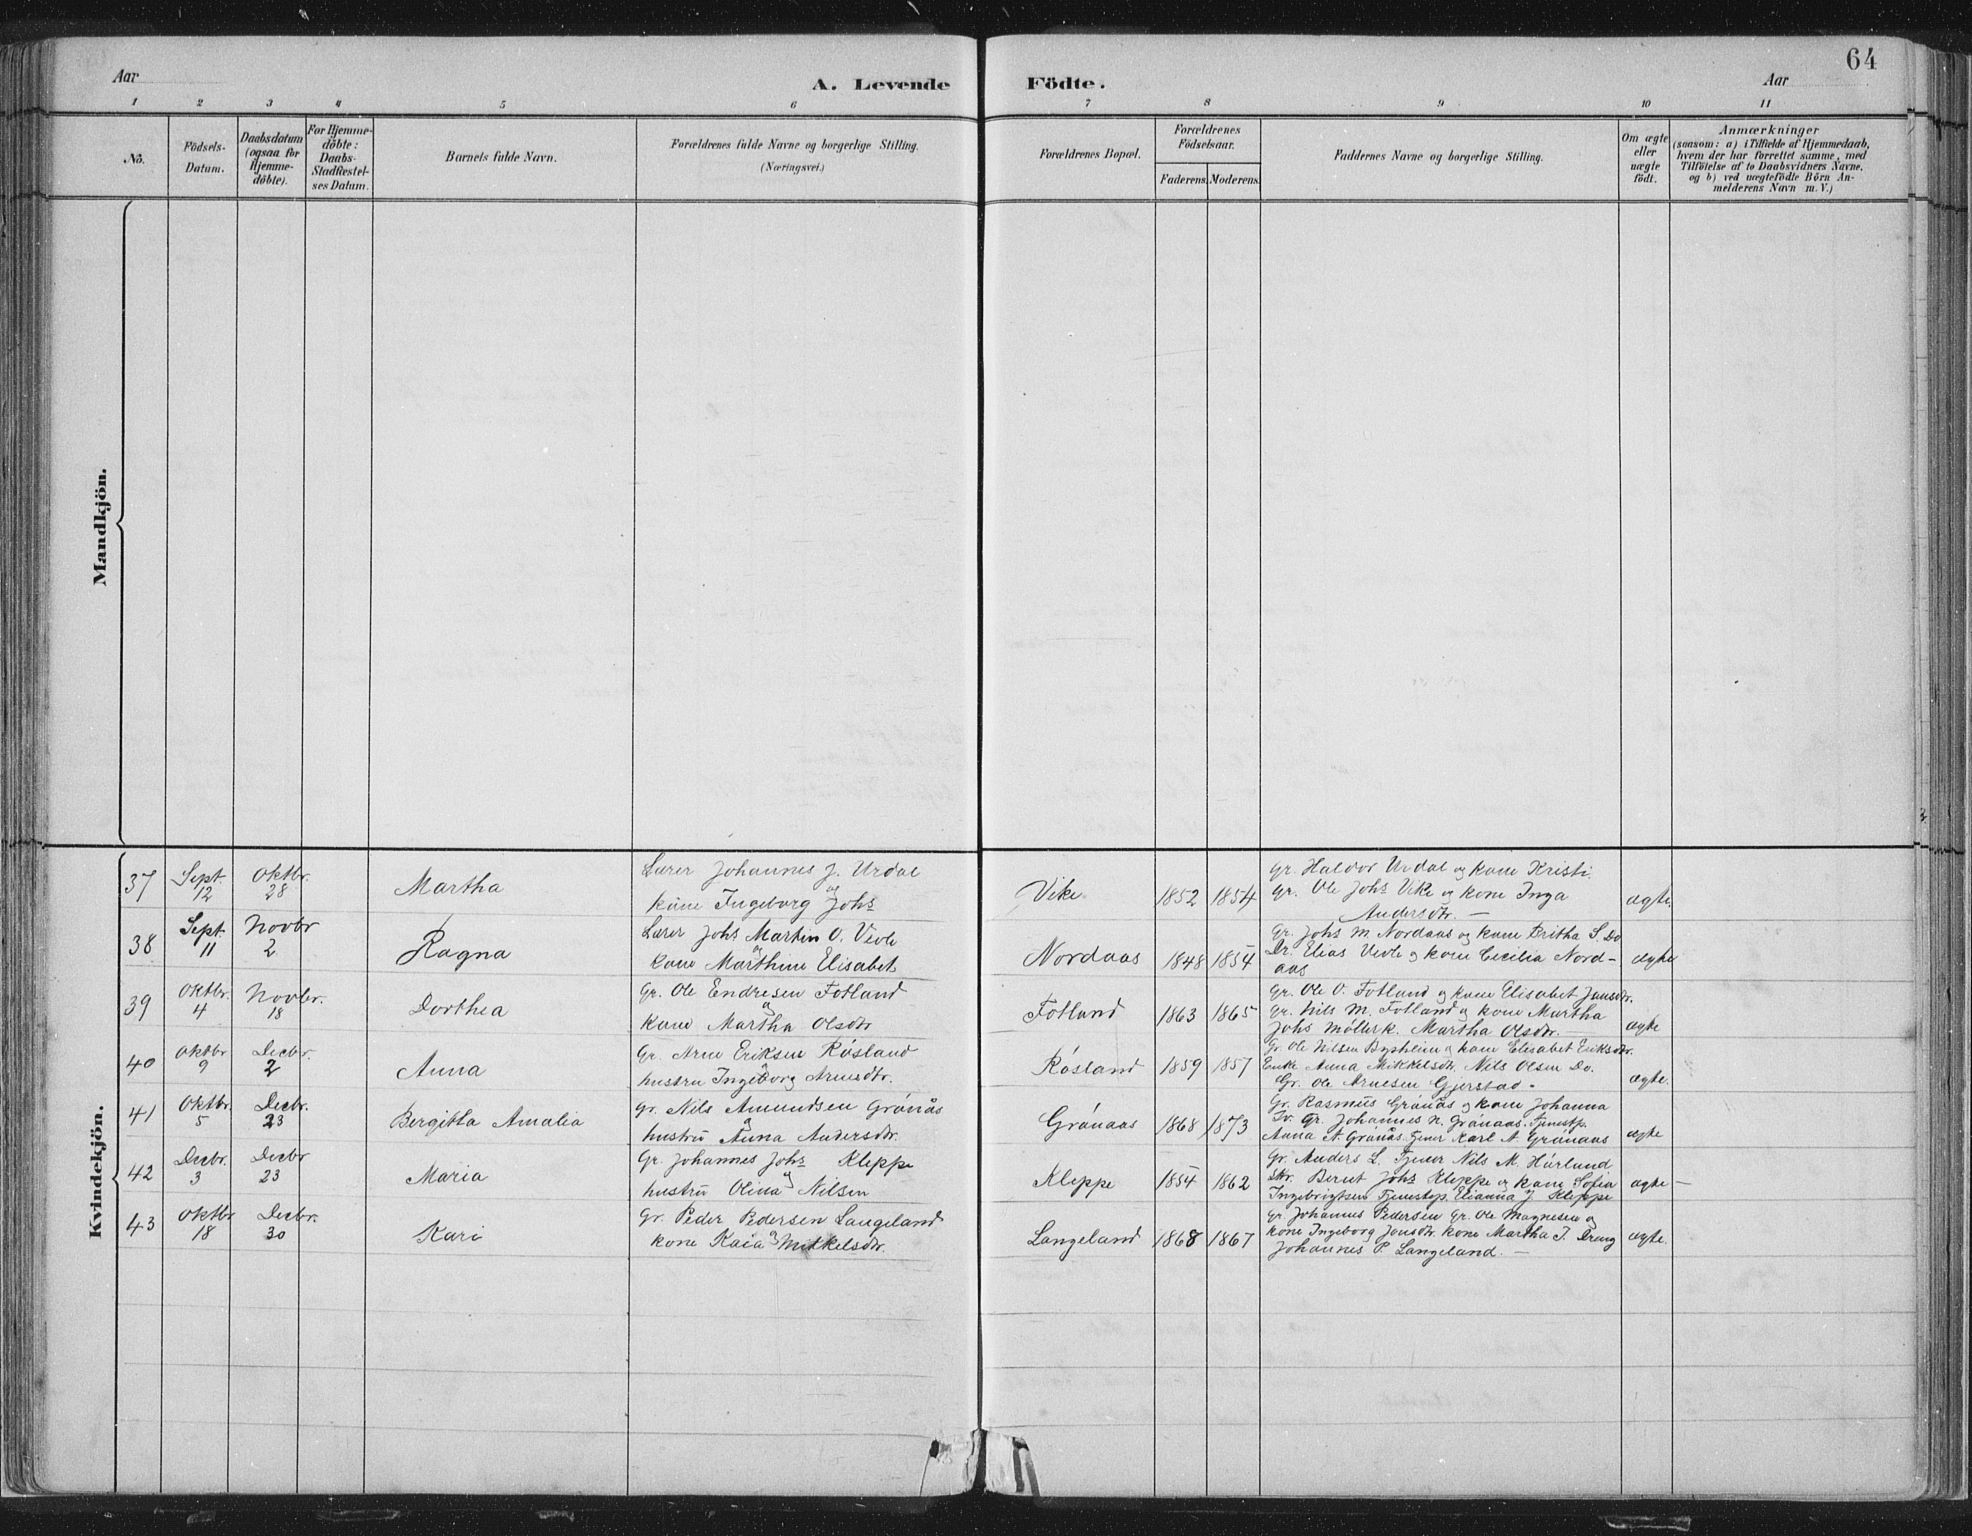 64
Aar
A. Levende
Födte.
Aar
1 2 3 4 5 6 7 8 9 10 11
No.
Födsels-
Datum.
Daabsdatum
(ogsaa for
Hjemme-
döbte).
For Hjemme-
döbte:
Daabs-
Stadfæstel-
ses Datum.
Barnets fulde Navn.
Forældrenes fulde Navne og borgerlige Stilling.
(Næringsvei.)
Forældrenes Bopæl.
Forældrenes
Födselsaar.
Faderens. Moderens.
Faddernes Navne og borgerlige Stilling.
Om ægte
eller
uægte
födt.
Anmærkninger
(saasom: a) i Tilfælde af Hjemmedaab,
hvem der har forrettet samme, med
Tilföielse af to Daabsvidners Navne,
og b) ved uægtefödte Börn An-
melderens Navn m. V.)
Mandkjön.
Kvindekjön.
37 Sept. 12 Oktbr. 28 Martha
Lærer Johannes J. Urdal
og
kone Ingeborg Johs
Vike 1852 1854
Gr. Haldor Urdal og kone Kristi.
Gr. Ole Johs Vike og kone Inga
Andersdtr. —
ægte.
38 Sept. 11 Novbr 2 Ragna
Lærer Johs Martin O. Vevle
og
kone Marthine Elisabet
Nordaas 1848 1854
Gr. Johs M Nordaas og kone Britha S. Do
Dr. Elias Vevle og kone Cecilia Nord-
aas
ægte
39 Oktbr. 4 Novbr. 18 Dorthea
Gr. Ole Endresen Fotland
og
kone Martha Olsdtr
Fotland 1863 1865
Gr. Ole O. Fotland og kone Elisabet Jansdtr.
Gr. Nils M. Fotland og kone Martha
Johs Møllerk. Martha Olsdtr. —
ægte
40 Oktbr 9 Decbr. 2 Anna
Gr. Arne Eriksen Røsland
og
hustru Ingeborg Arnesdtr.
Røsland 1859 1857
Gr. Ole Nilsen Bysheim og kone Elisabet Eriksdtr.
Enke Anna Mikkelsdtr. Nils Olsen Do.
Gr. Ole Arnesen Gjerstad -
ægte.
41 Oktbr. 5 Decbr. 23 Bergitta Amalia
Gr. Nils Amundsen Grønås
og
hustru Anna Andersdtr.
Grønaas 1868 1873
Gr. Rasmus Grønås og kone Johanna
Gr. Johannes N. Grønaas. Tjenestp.
Anna A. Grønås. Tjener Karl A. Grønaas
ægte
42 Decbr. 3 Decbr 23 Maria
Gr. Johannes Johs Kleppe
og
hustru Olina Nilsen
Kleppe 1854 1862
Gr. Anders L. Tjener Nils M. Hürland
Skr. Bernt Johs Kleppe og kone Sofia
Ingebrigtsen Tjenestep. Elianna J. Kleppe
ægte —
43 Oktbr 18 Decbr. 30 Kari
Gr. Peder Pedersen Langeland
og
kone Kaia Mikkelsdtr.
Langeland 1868 1867
Gr. Johannes Pedersen Gr. Ole Magnesen og
kone Ingeborg Jonsdtr. kone Martha J. Dreng
Johannes P. Langeland. —
ægte.